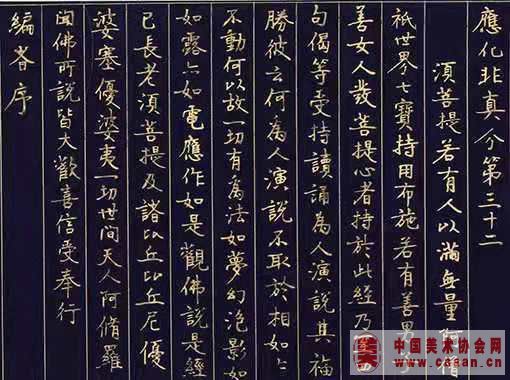 應化非真分第三十二
須菩提若有人以滿無量阿僧
祇世界七寶持用布施若有善男子
善女人發菩提心者持於此經乃
句偈等受持讀誦為人演說其福
勝彼云何為人演說不取於相如々
不動何以故一切有為法如夢幻泡影如
如露亦如電應作如是觀佛說是經
已長老須菩提及諸比丘比丘尼優
婆塞優婆夷一切世間天人阿脩羅
聞佛所說皆大歡喜信受奉行
編序
中国美术协会网
www.caaan.cn